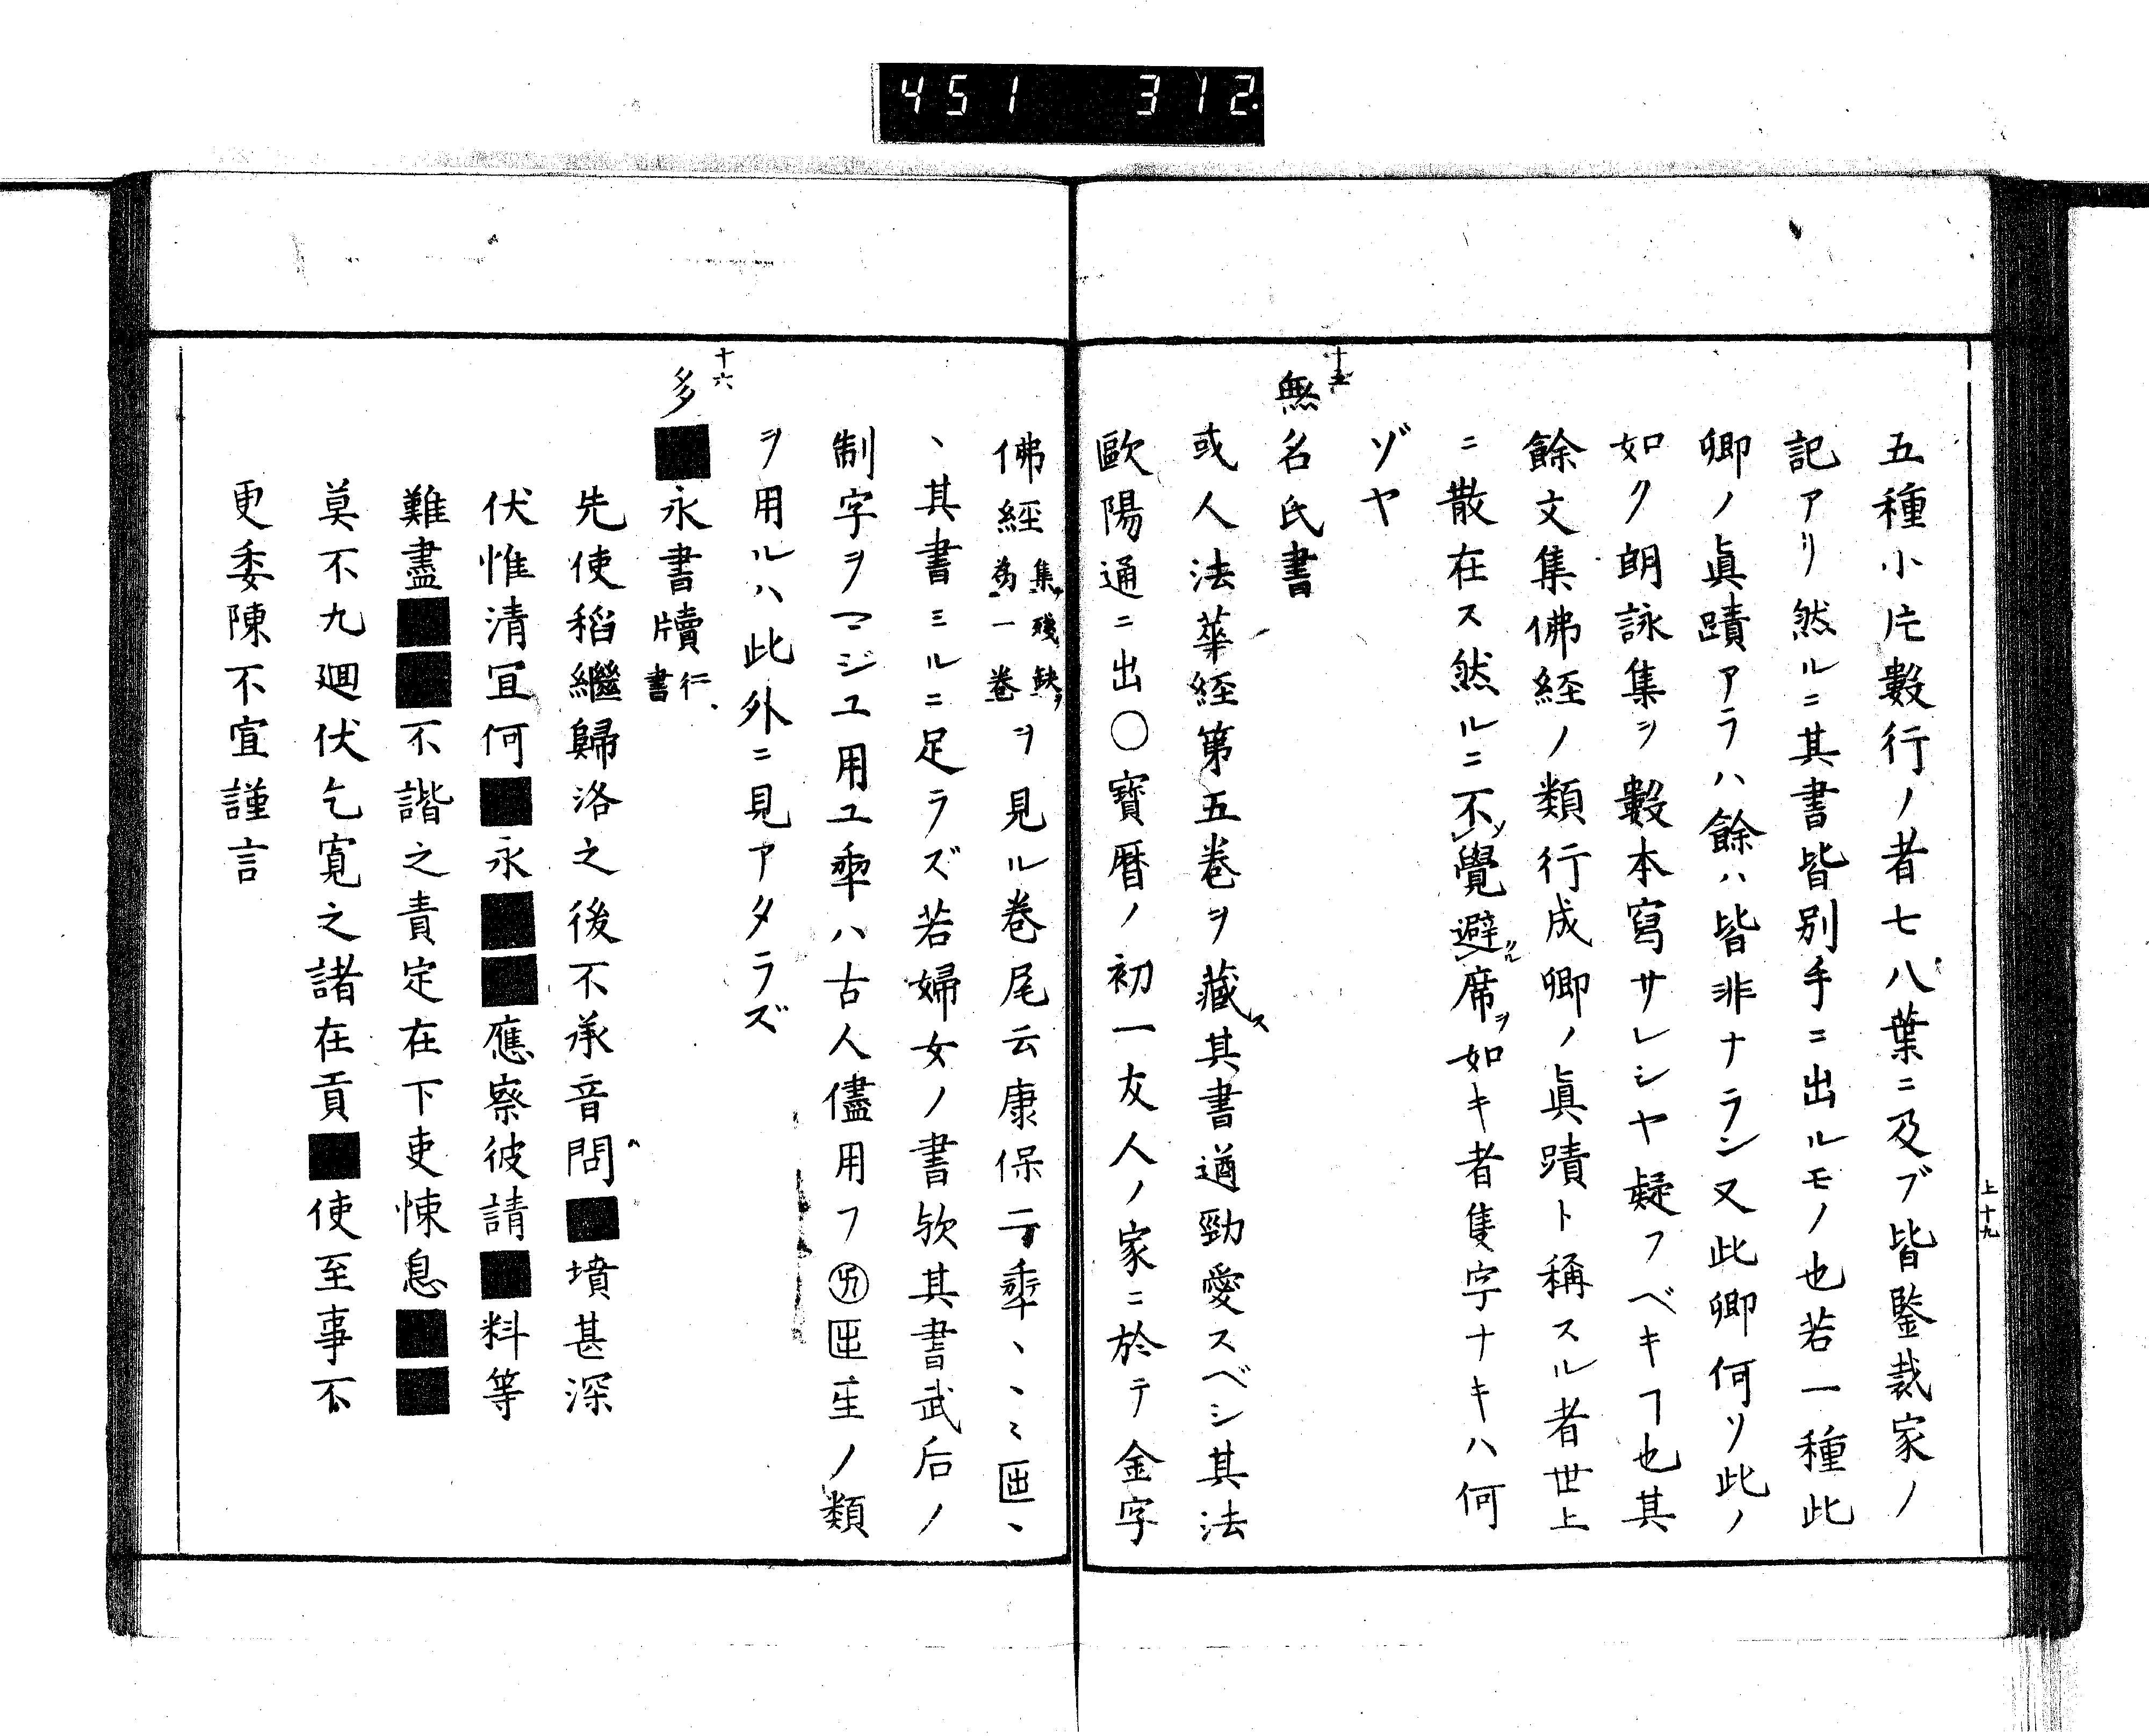 451 312
上十九
五種小片數行ノ者七八葉ニ及ブ皆鑒裁家ノ
記アリ然ルニ其書皆別手ニ出ルモノ也若一種此
卿ノ眞蹟アラハ餘ハ皆非ナラン又此卿何ソ此ノ
如ク朗詠集ヲ數本寫サレシヤ疑フベキヿ也其
餘文集佛経ノ類行成卿ノ眞蹟ト稱スル者世上
ニ散在ス然ルニ不覺避席ヲ如キ者隻字ナキハ何
ゾヤ
十五
無名氏書
或人法華経第五卷ヲ藏ス其書遒勁愛スベシ其法
歐陽通ニ出〇寶暦ノ初一友人ノ家ニ於テ金字
佛經集殘缺ヲ為一卷ヲ見ル卷尾云康保二𠡦、、ミ𠥱、
、其書ミルニ足ラズ若婦女ノ書欤其書武后ノ
制字ヲマジユ用ユ𠡦ハ古人儘用フ㊉𠥱𤯔ノ類
ヲ用ルハ此外ニ見アタラズ
十六
多■永書牘行書
先使稻繼歸洛之後不承音問■墳甚深
伏惟清冝何■永■■應察彼請■料等
難盡■■不諧之責定在下吏悚息■■
莫不九廻伏乞寛之諸在貢■使至事不
更委陳不宣謹言